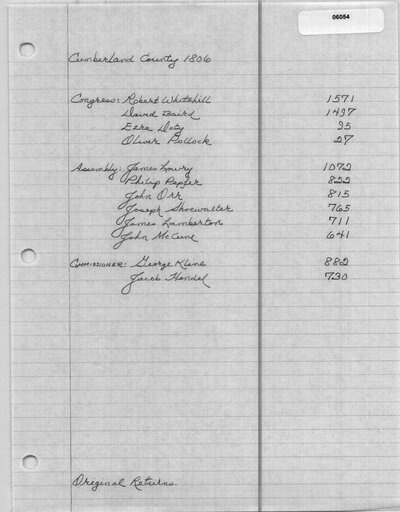 06054
Cumberland County 1806
Congress: Robert Whitehill 1571
David Baird 1497
Ezra Doty 95
Oliver Pollock 27
Assembly: James Lowry 1072
Philip Pepfer 822
John Orr 815
Joseph Shoewalter 765
James Lamberton 711
John McCune 641
Commissioner: George Kline 882
Jacob Hendel 730
Original Returns.